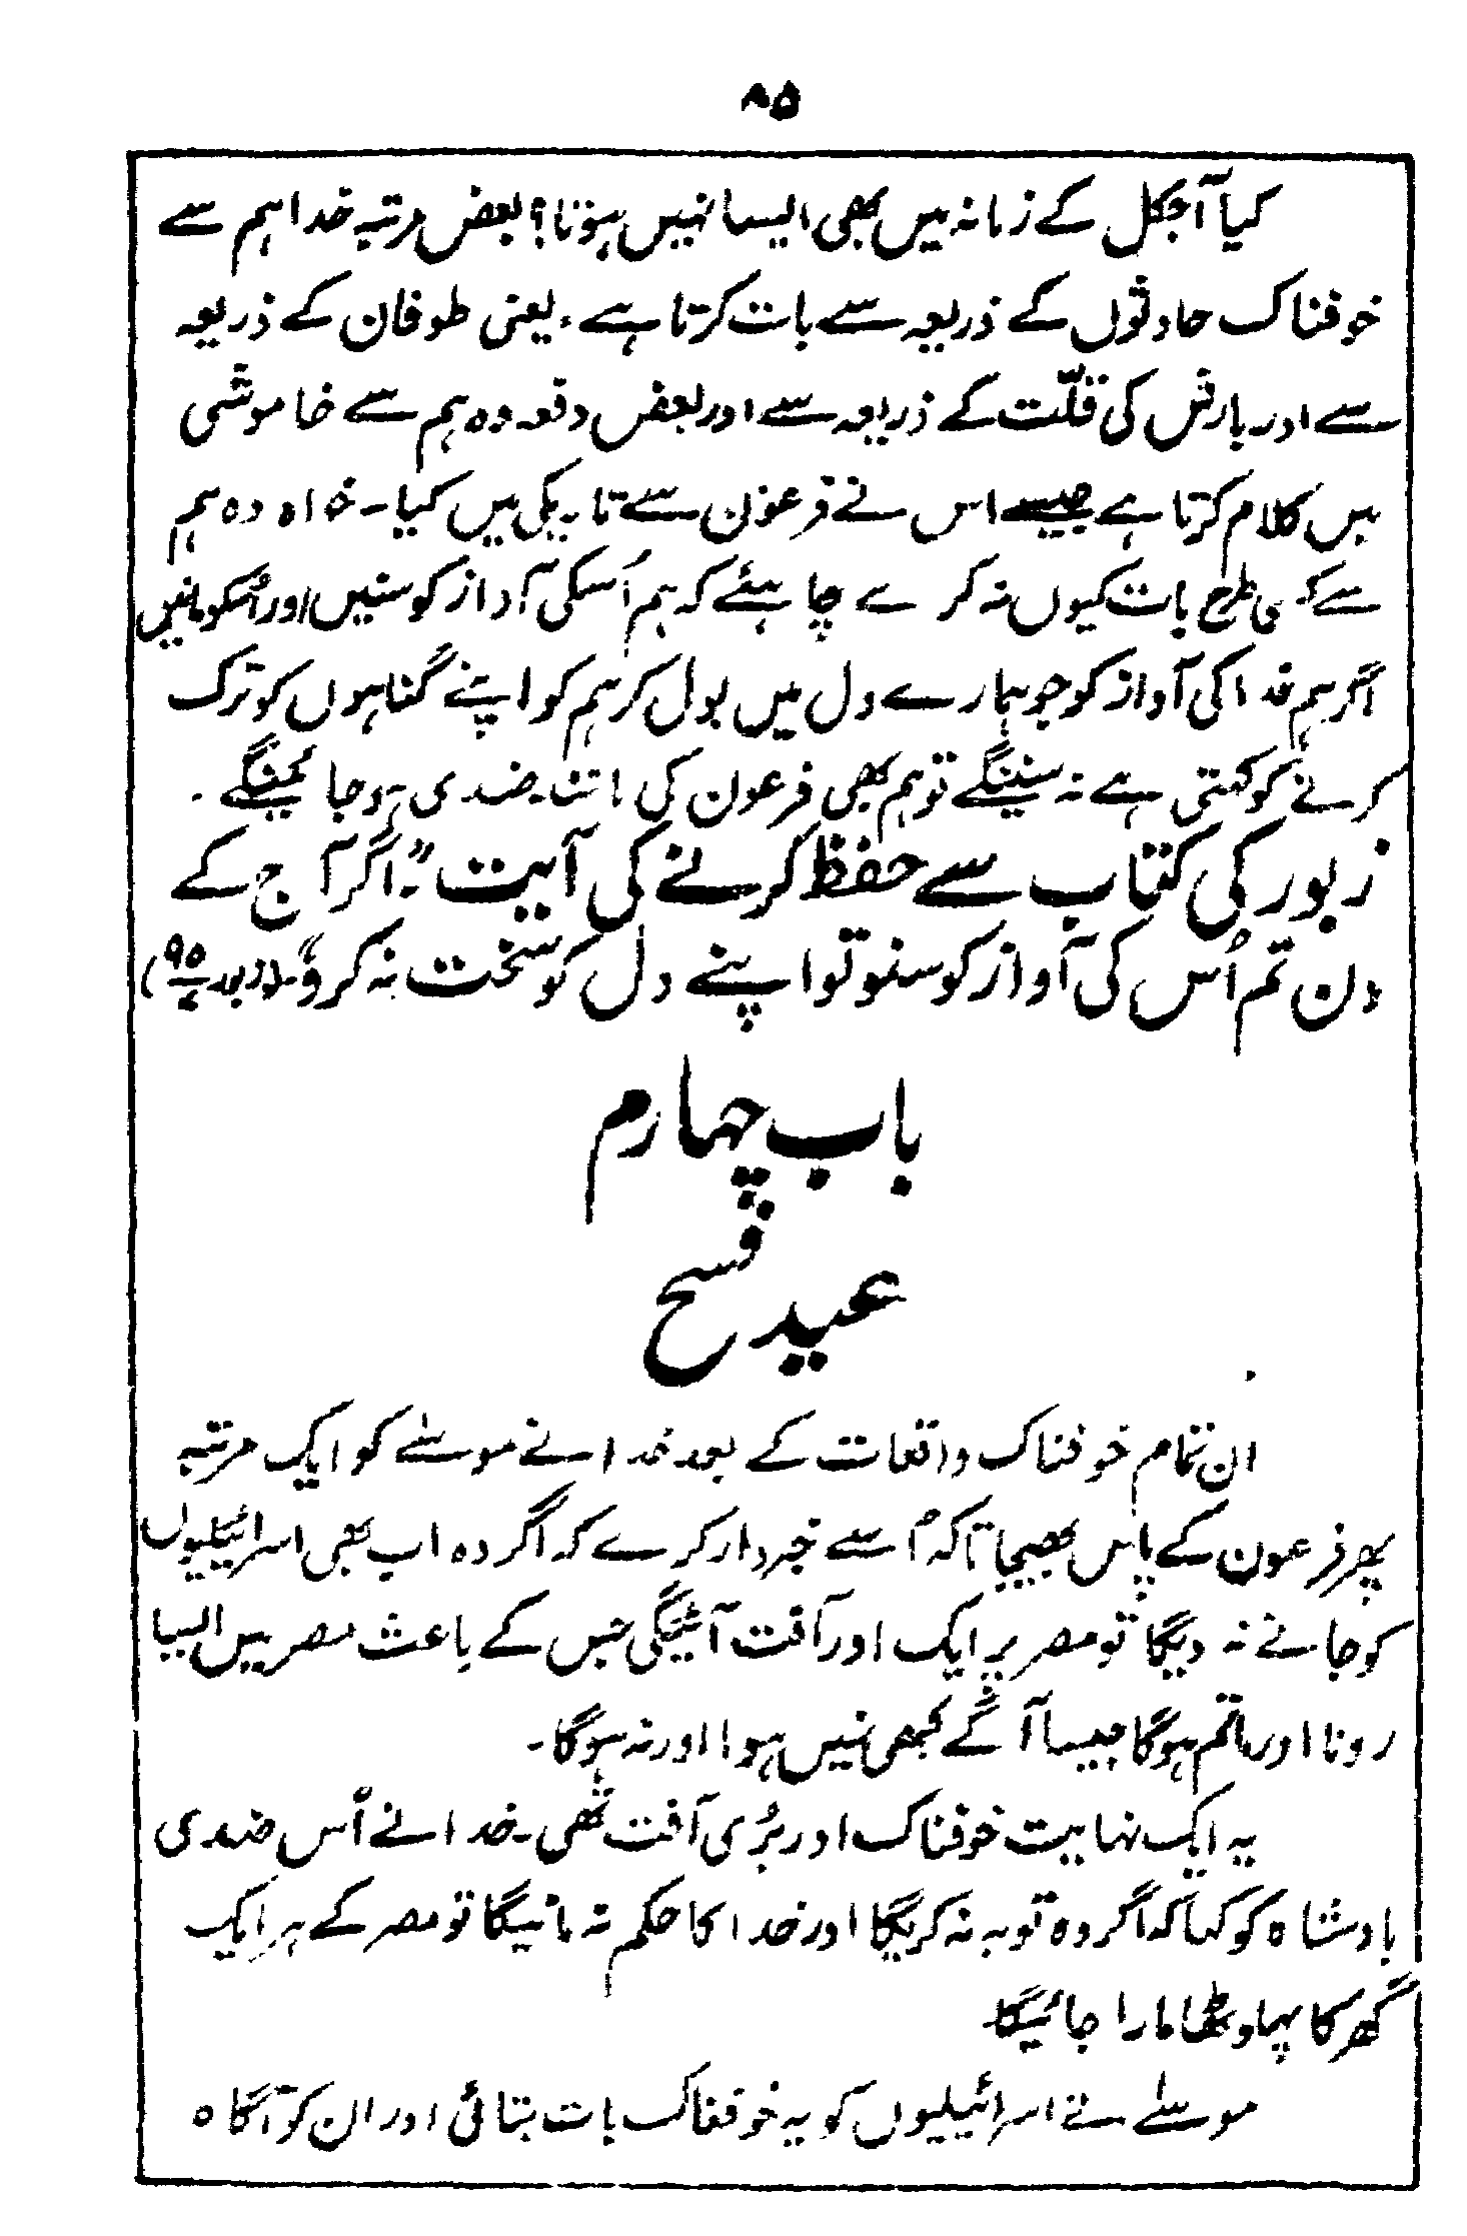 ۸۵
کیا آجکل کے زمانہ میں بھی ایسا نہیں ہوتا؟ بعض مرتبہ خدا ہم سے
خوفناک حادثوں کے ذریعہ سے بات کرتا ہے، یعنی طوفان کے ذریعہ
سے اور بارش کی قلّت کے ذریعہ سے اور بعض دفعہ وہ ہم سے خاموشی
میں کلام کرتا ہے جیسے اس نے فرعون سے تاریکی میں کیا۔ خواہ وہ ہم
سے کسی طرح بات کیوں نہ کرے چاہئے کہ ہم اُسکی آواز کو سنیں اور اُسکو مانیں
اگر ہم خدا کی آواز کو جو ہمارے دل میں بول کر ہم کو اپنے گناہوں کو ترک
کرنے کو کہتی ہے نہ سنینگے تو ہم بھی فرعون کی مانند ضدی ہو جائینگے۔
زبور کی کتاب سے حفظ کرنے کی آیت "۔ اگر آج کے
دن تم اُس کی آواز کو سنو تو اپنے دل کو سخت نہ کرو"۔ (زبور ۹۵)
باب چہارم
عید فسح
ان تمام خوفناک واقعات کے بعد خدا نے موسےٰ کو ایک مرتبہ
پھر فرعون کے پاس بھیجا تاکہ اُسے خبردار کرے کہ اگر وہ اب بھی اسرائیلیوں
کو جانے نہ دیگا تو مصر پر ایک اور آفت آئیگی جس کے باعث مصر میں ایسا
رونا اور ماتم ہوگا جیسا آگے کبھی نہیں ہوا اور نہ ہوگا۔
یہ ایک نہایت خوفناک اور بُری آفت تھی۔ خدا نے اُس ضدی
بادشاہ کو کہا کہ اگر وہ توبہ نہ کریگا اور خدا کا حکم نہ مانیگا تو مصر کے ہر ایک
گھر کا پہلوٹھا مارا جائیگا۔
موسےٰ نے اسرائیلیوں کو یہ خوفناک بات بتائی اور ان کو آگاہ